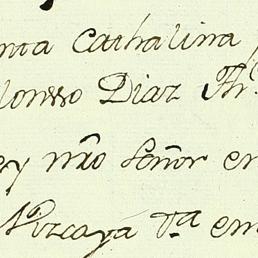 nta Cathalina
lonsso Diaz Thˢ
ey nr̃o Señor en
Vizcaya Vᵃ em